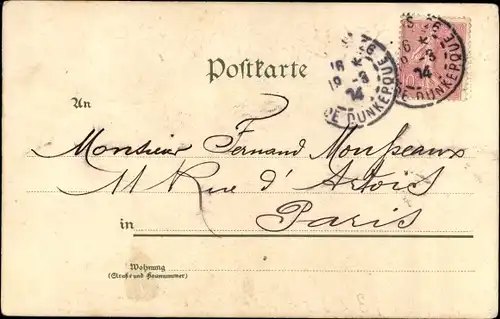 Postkarte
An
Monsieur Fernand
11 Rue d'Artois
Paris
in
Wohnung
(Straße und Hausnummer)
DE DUNKERQUE
DE DUNKERQUE